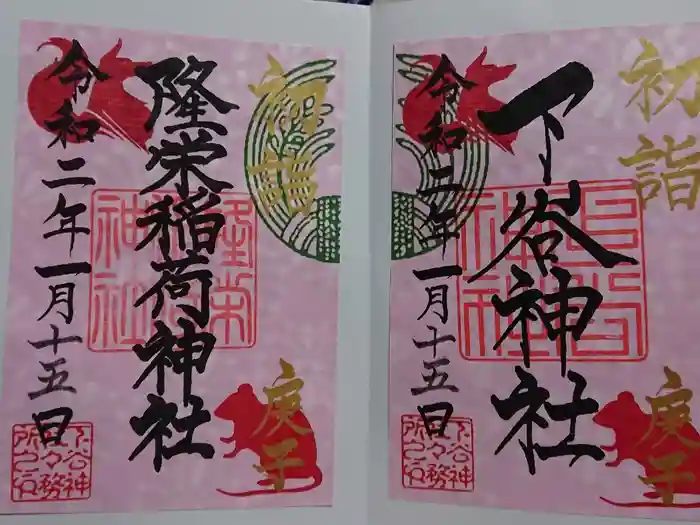 初詣
下谷神社
令和二年一月十五日
庚子
下谷神
社々務
所之印
初詣
隆栄稲荷神社
令和二年一月十五日
庚子
隆栄
稲荷
神社
下谷神
社々務
所之印